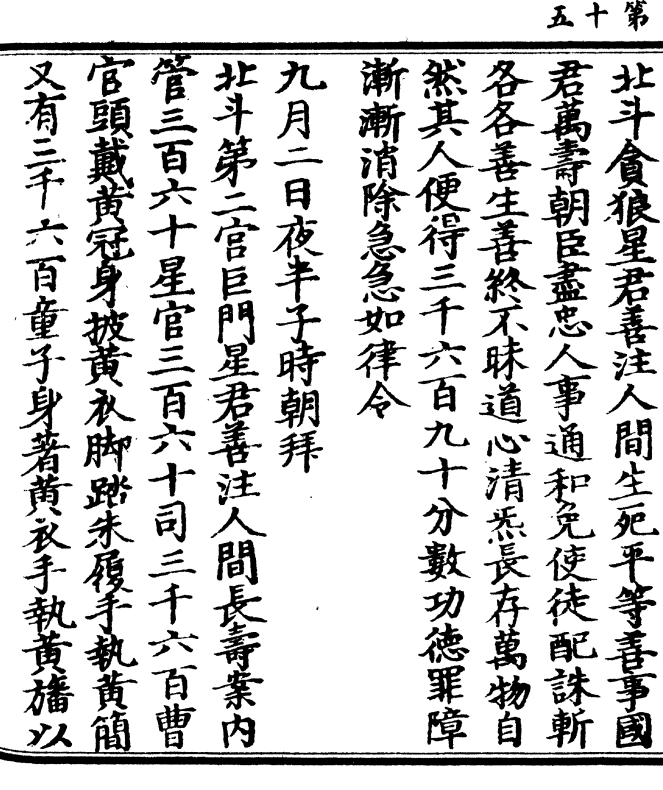 第十五
北斗貪狼星君善注人間生死平等善事國
君萬壽朝臣盡忠人事通和免使徒配誅斬
各各善生善終不昧道心清炁長存萬物自
然其人便得三千六百九十分數功德罪障
漸漸消除急急如律令
九月二日夜半子時朝拜
北斗第二宮巨門星君善注人間長壽案內
管三百六十星官三百六十司三千六百曹
官頭戴黃冠身披黃衣脚踏朱履手執黃簡
又有三千六百童子身著黃衣手執黃旛以